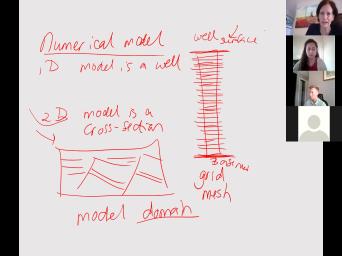 Numerical model
1D model is a well
well
surface
2D model is a
cross-section
grid
mesh
model domain